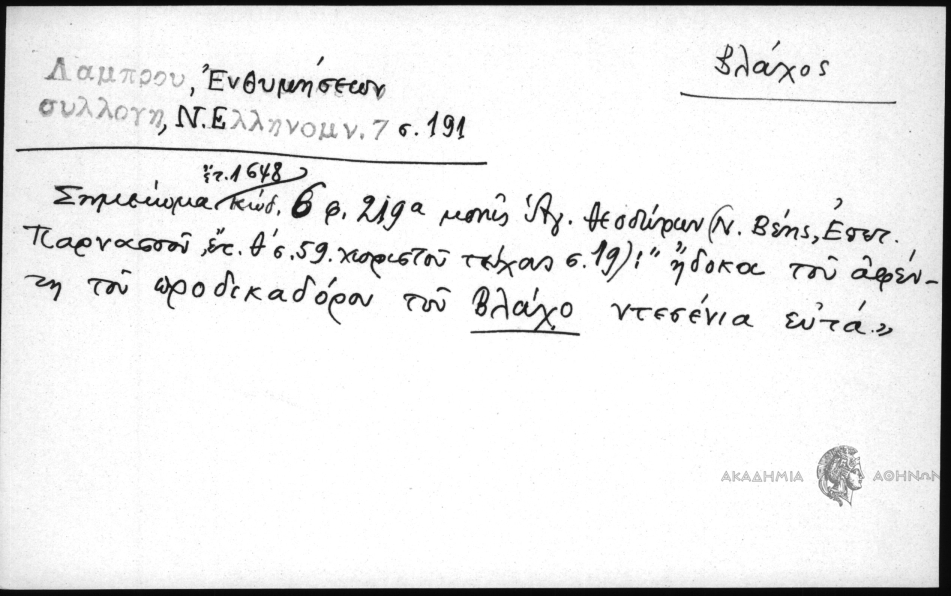 Βλάχος
Λαμπρου, Ἐνθυμήσεων
συλλογη, Ν.Ελληνομν. 7 σ. 191
ἔτ. 1648
Σημείωμα κώδ. 6 φ. 219α μονῆς Ἁγ. Θεοδώρων (Ν. Βέης, Ἐπετ.
Παρνασσοῦ, ἔτ. Θ΄ σ. 59. χωριστοῦ τεύχους σ. 19): "ἤδοκα τοῦ ἀφέν-
τη τοῦ προδικαδόρου τοῦ Βλάχο ντεσένια εὐτά."
ΑΚΑΔΗΜΙΑ ΑΘΗΝΩΝ